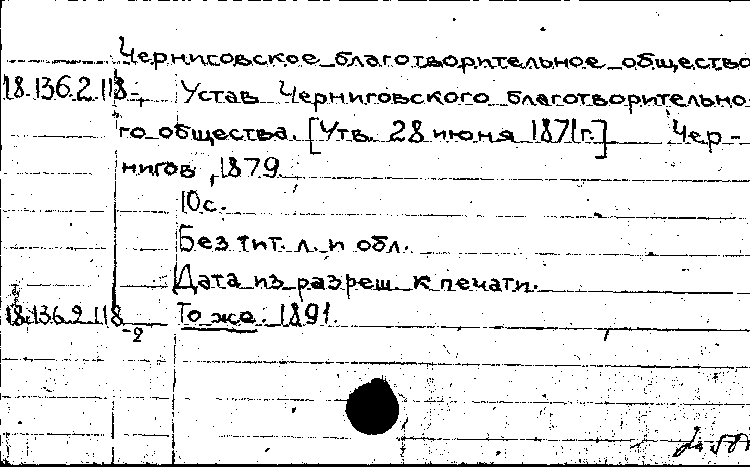 Черниговское благотворительное общество
18.136.2.118-1 Устав Черниговского благотворительно-
го общества. [Утв. 28 июня 1871г.] Чер-
нигов, 1879
10с.
Без тит. л. и обл.
Дата из разреш. к печати.
18.136.2.118-2 То же. 1891.